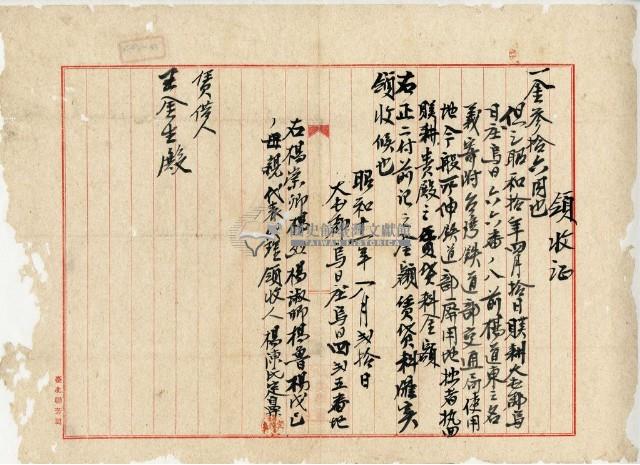 領收证
一金參拾六円也
但シ昭和拾年四月拾日賸耕大屯郡烏
日庄烏日六六番ノ八前楊道東之名
義寄附台灣鉄道部交通局使用
地今般不伸鉄道部廢用地拙者執
賸耕貴殿之賃貸料金額
右正ニ付前記之金額賃貸料確实
領收候也
昭和十一年一月弍拾日
大屯郡烏日庄烏日四弍五番地
右楊崇卿楊 楊淑卿楊魯楊戊己
母親代表 理領收人 楊陳氏定
賃借人
王金生殿
國史館臺灣文獻館
TAIWAN HISTORICA